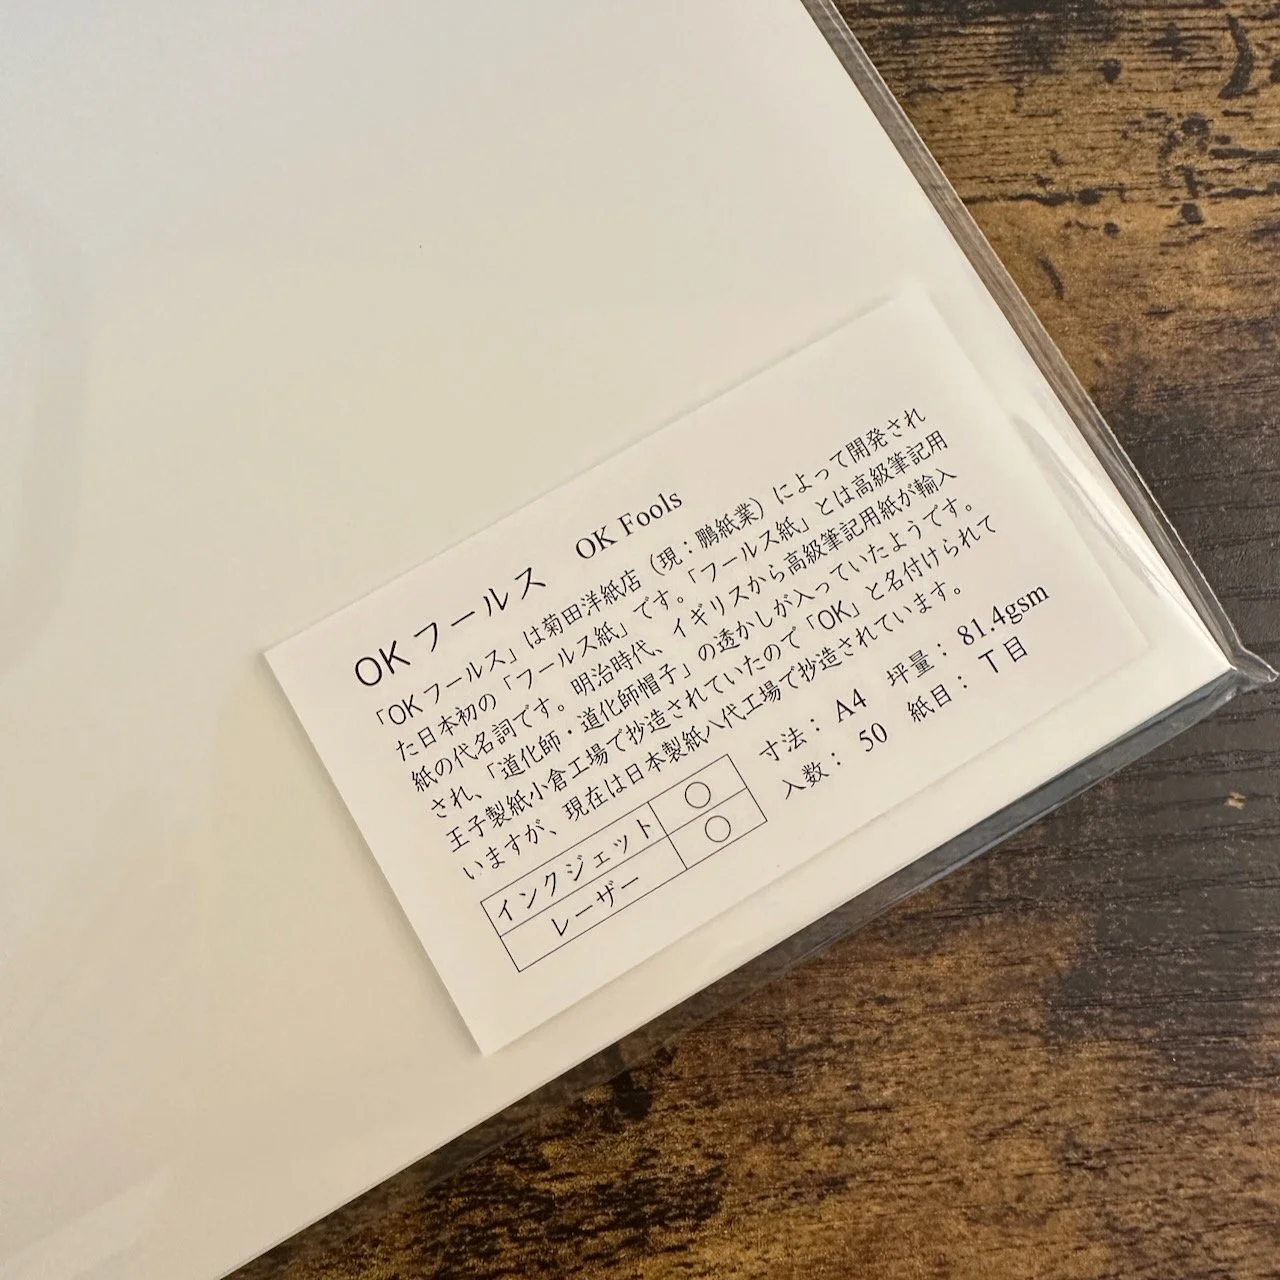 OKフールス　OK Fools
「OKフールス」は菊田洋紙店（現：鵬紙業）によって開発され
た日本初の「フールス紙」です。「フールス紙」とは高級筆記用
紙の代名詞です。明治時代、イギリスから高級筆記用紙が輸入
され、「道化師・道化師帽子」の透かしが入っていたようです。
王子製紙小倉工場で抄造されていたので「OK」と名付けられて
いますが、現在は日本製紙八代工場で抄造されています。
インクジェット ○
レーザー ○
寸法： A4 坪量： 81.4gsm
入数： 50 紙目： T目